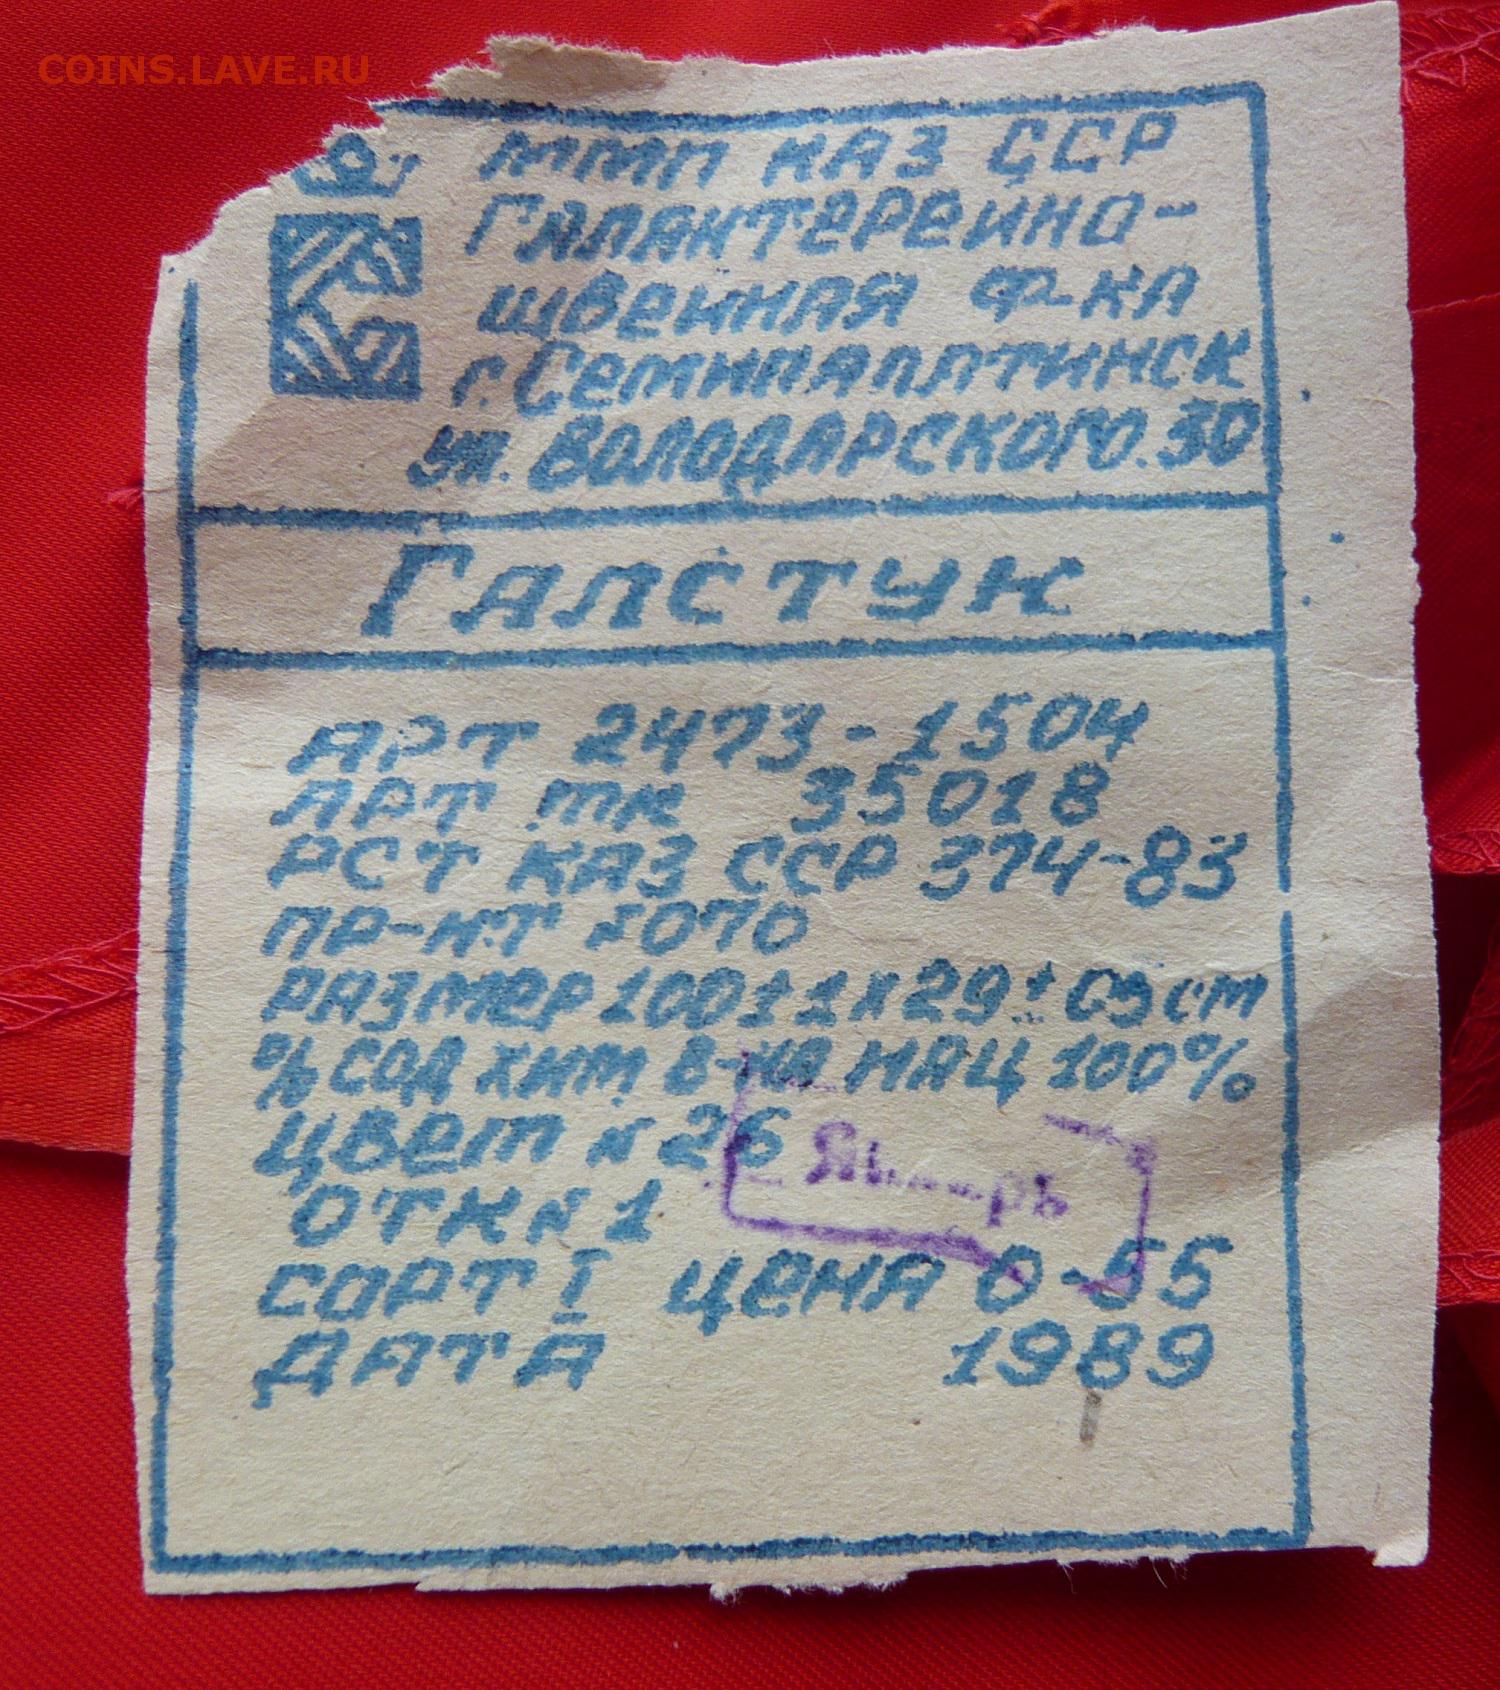 COINS.LAVE.RU
ММП КАЗ ССР
Галантерейно-
швейная ф-ка
г. Семипалатинск
ул. Володарского. 30
Галстук
АРТ 2473-1504
АРТ ТК 35018
РСТ КАЗ ССР 374-83
ПР-НТ №070
РАЗМЕР 100±1х29±05см
% СОД ХИМ В-НА НАЦ 100%
Цвет №26
ОТК №1
СОРТ I ЦЕНА 0-55
ДАТА 1989
Январь